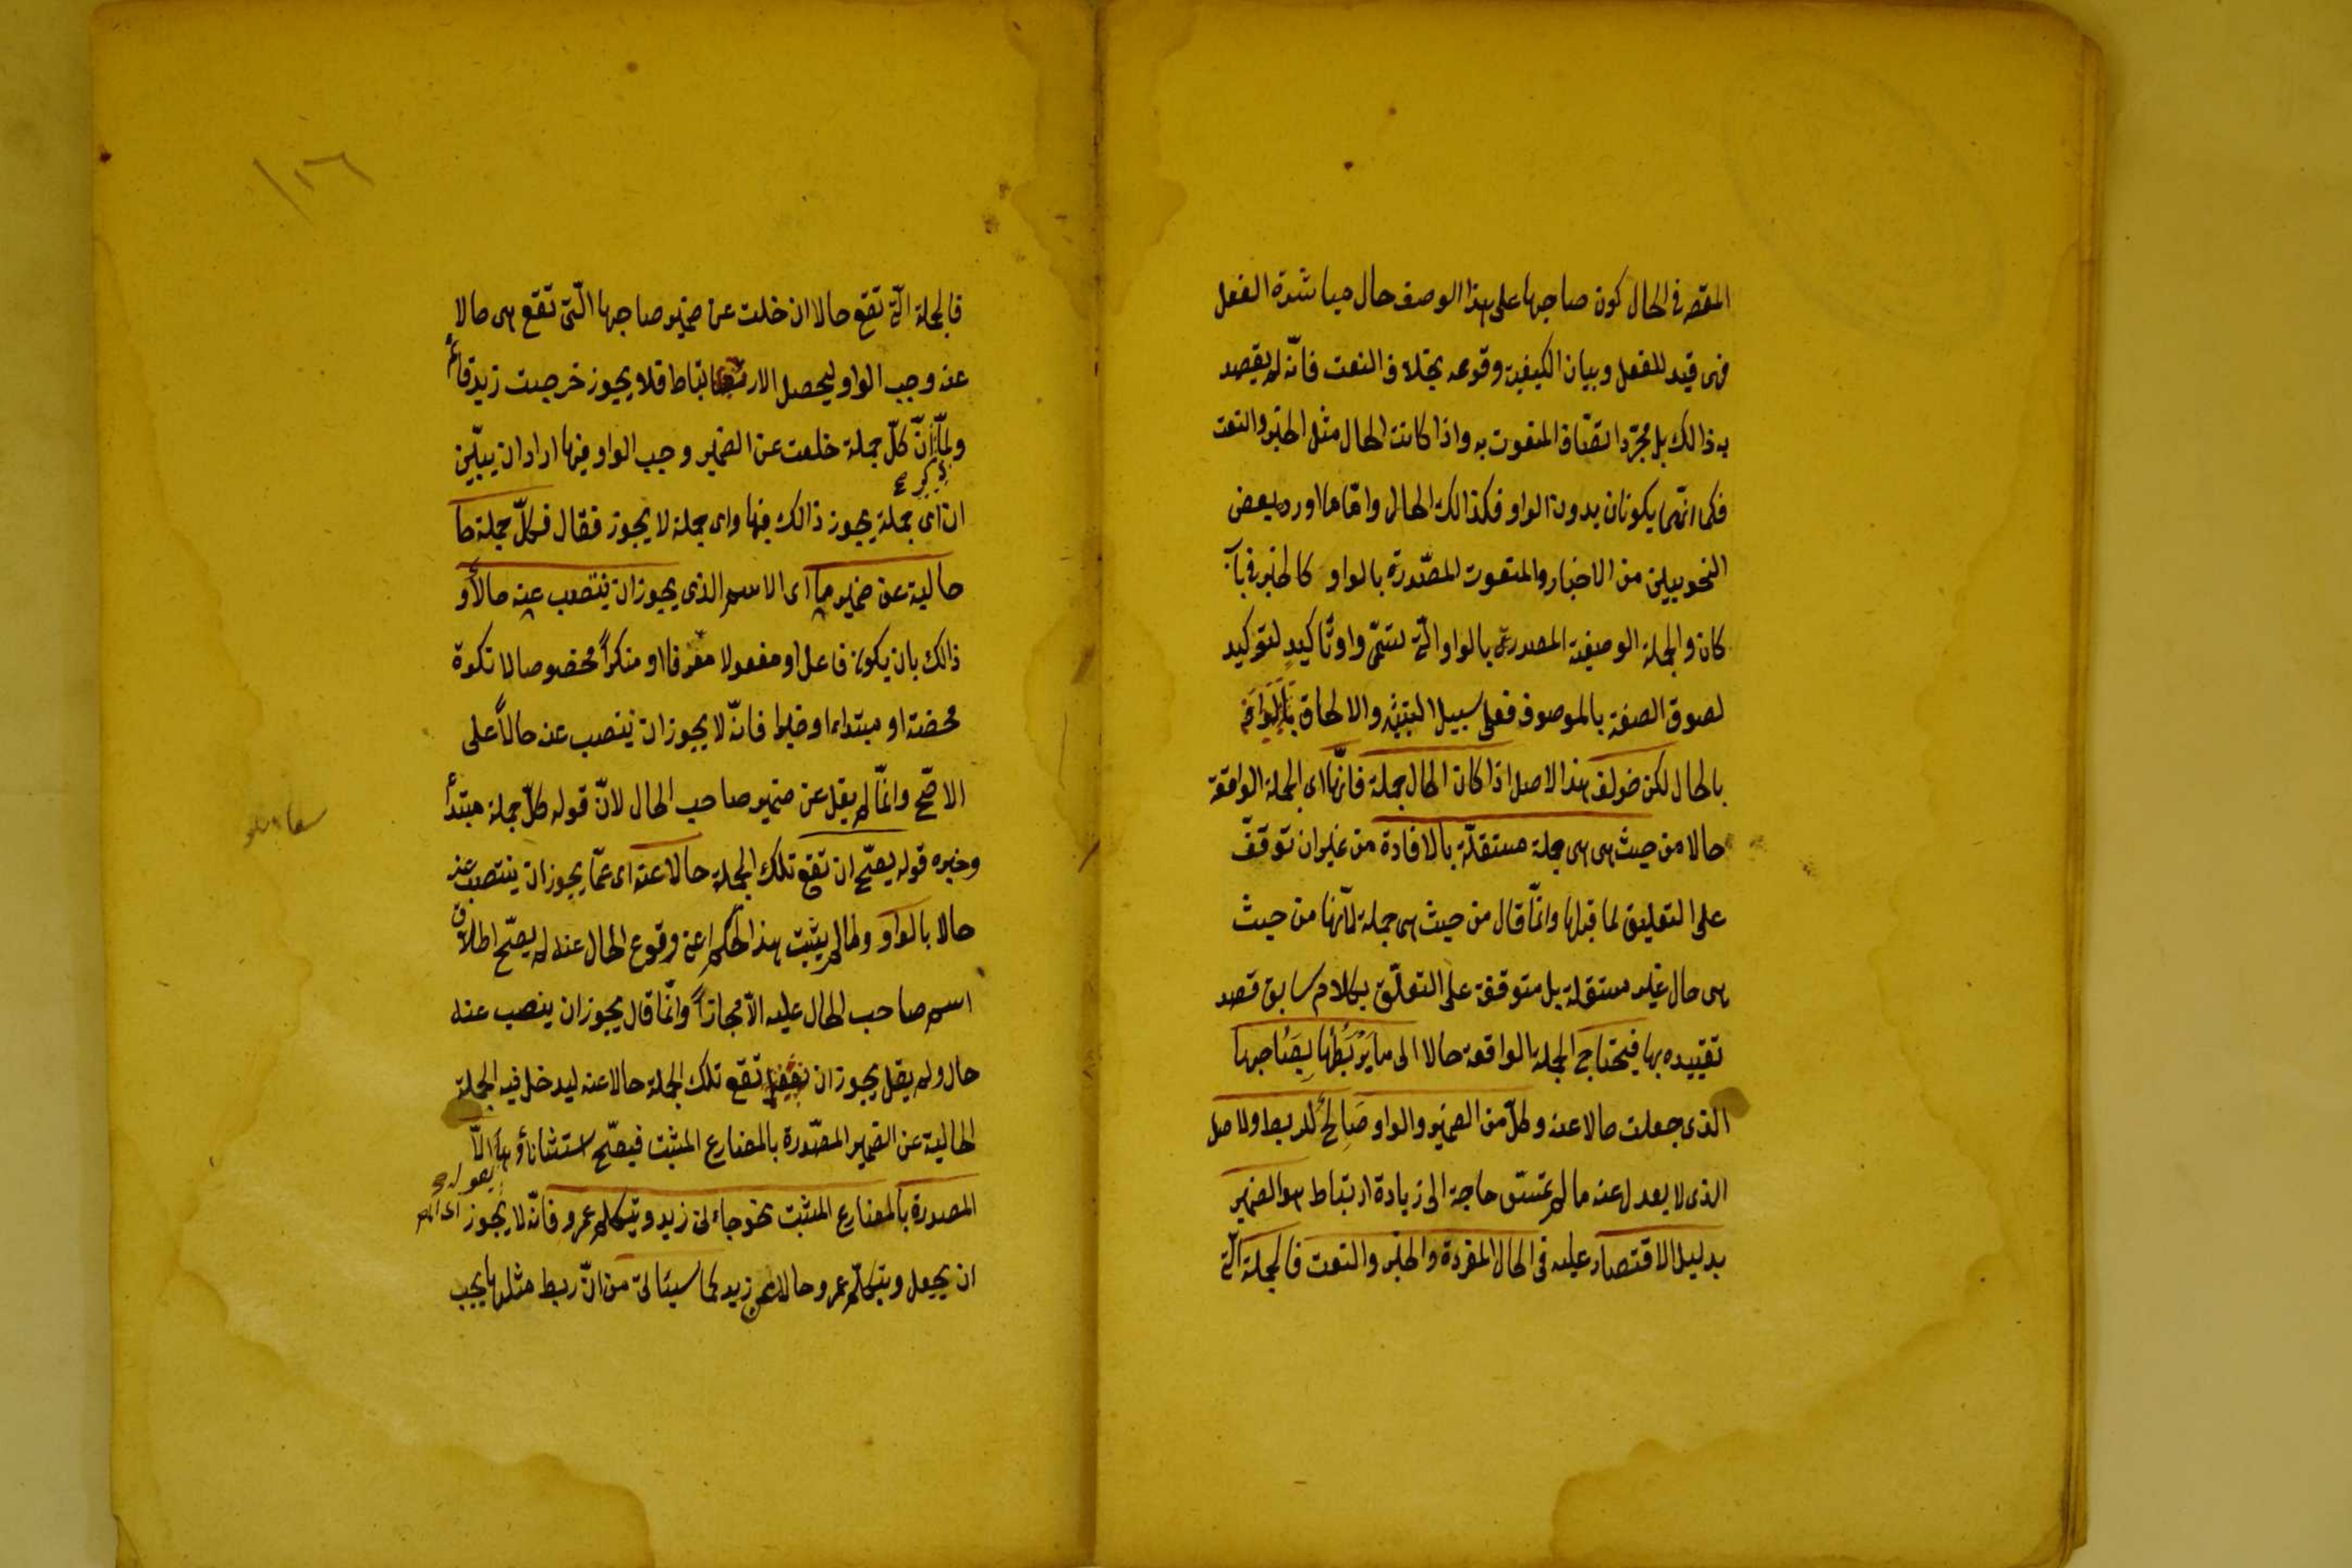 المقصه فى الحال كون صاحبها على هذا الوصف حال مباشدة الفعل
فهى قيد للفعل وبيان الكيفية وقوعه بخلاف النعت فانّه لم يقصد
به ذالك بل مجرّد اتصّاف المنعوت به واذا كانت الحال مثل الخبر والنعت
فكما انّهما يكونان بدون الواو فكذالك الحال وامّا ما اورده بعض
النحويين من الاخبار والمنعوت المصّدرة بالواو كالخبر فى باب
كان والجملة الوصفية المصدرة بالواو الّتى تسمّى واو تأكيد لتوكيد
لصوق الصفة بالموصوف فعلى سبيل التبشيه والالحاق
بالحال لكن خولف هذا الاصل اذا كان الحال جملة فانّها اى الجملة الواقعة
حالا من حيث هى هى جملة مستقلّة بالافادة من غير ان توقف
على التعليق لما قبلها وانّما قال من حيث هى جملة لأنها من حيث
هى حال غير مستقلة بل متوقفة على التعلّق بكلام سابق قصد
تقييده بها فيحتاج الجملة الواقعة حالا الى ما يَرْبُطُها بِصَاحبها
الذى جعلت حالا عنه وكلّ من الضمير والواو صَالِحٌ للربط والاصل
الذى لا يعدل عنه ما لم تمسّ حاجة الى زيادة ارتباط هو الضمير
بدليل الاقتصار عليه فى الحال المفردة والخبر والنعت فالجملة الّتى
١٢٦
فالجملة الّتى تقع حالا ان خلت عن ضمير صاحبها الّتى تقع هى حالا
عنه وجب الواو ليحصل الارتباط فلا يجوز خرجت زيد قائم
ولمّا ذكر انّ كلّ جملة خلت عن الضمير وجب الواو فيها اراد ان يبيّن
ان اى جملة يجوز ذالك فيها واى جملة لا يجوز فقال فكلّ جملة ما
حالية عن ضمير ما اى الاسم الذى يجوز ان ينتصب عنه حالاً و
ذالك بان يكون فاعل او مفعولا معرفا او منكراً مخصوصا لا نكرة
محضة او مبتداء او خبرا فانّه لا يجوز ان ينصب عنه حالاً على
الاصّح وانّما لم يقل عن ضمير صاحب الحال لانّ قوله كلّ جملة مبتدأ
وخبره قوله يصّح ان تقع تلك الجملة حالا عنه اى عمّا يجوز ان ينتصب عنه
حالا بالواو وما لم يثبت هذا الحكم اعن وقوع الحال عنه لم يصّح اطلاق
اسم صاحب الحال عليه الّا مجازاً وانّما قال يجوز ان ينصب عنه
حال ولم يقل يجوز ان تقع تلك الجملة حالا عنه ليدخل فيه الجملة
الحالية عن الضمير المصّدرة بالمضارع المثبت فيصّح استثناؤها الّا
المصدرة بالمضارع المثبت نحو جاءنى زيد ويتكلم عمرو فانّه لا يجوز
ان يجعل ويتكلّم عمرو حالا عن زيد لما سيئاتى من انّ ربط مثلها يجب